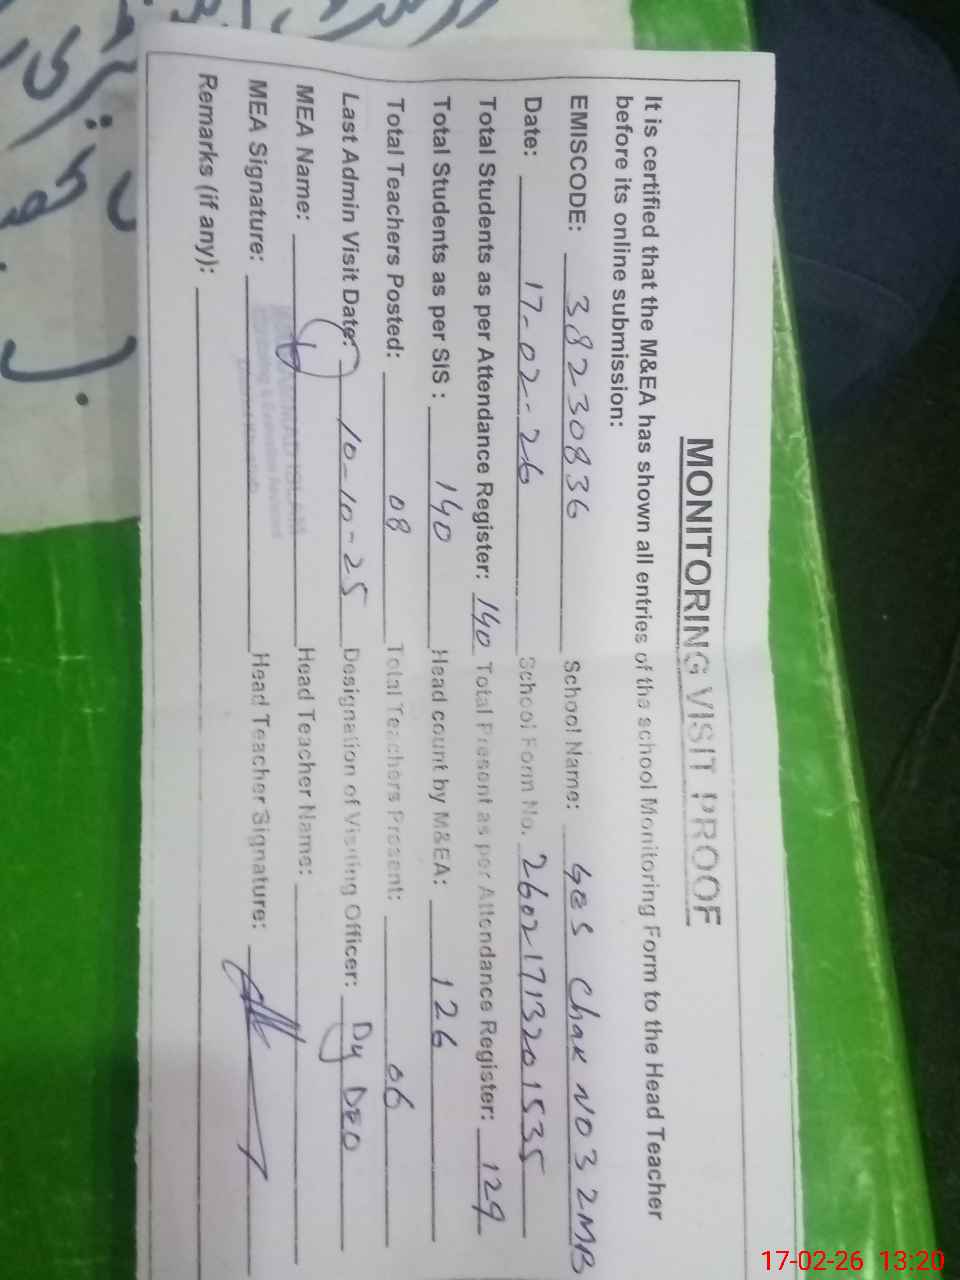 MONITORING VISIT PROOF
It is certified that the M&EA has shown all entries of the school Monitoring Form to the Head Teacher
before its online submission:
EMISCODE: 38230836 School Name: GES Chak NO 3 2MB
Date: 17-02-26 School Form No. 26021713201535
Total Students as per Attendance Register: 140 Total Present as per Attendance Register: 129
Total Students as per SIS : 140 Head count by M&EA: 126
Total Teachers Posted: 08 Total Teachers Present: 06
Last Admin Visit Date: 10-10-25 Designation of Visiting Officer: Dy DEO
MEA Name: Head Teacher Name:
MEA Signature: Head Teacher Signature:
Remarks (if any):
17-02-26 13:20